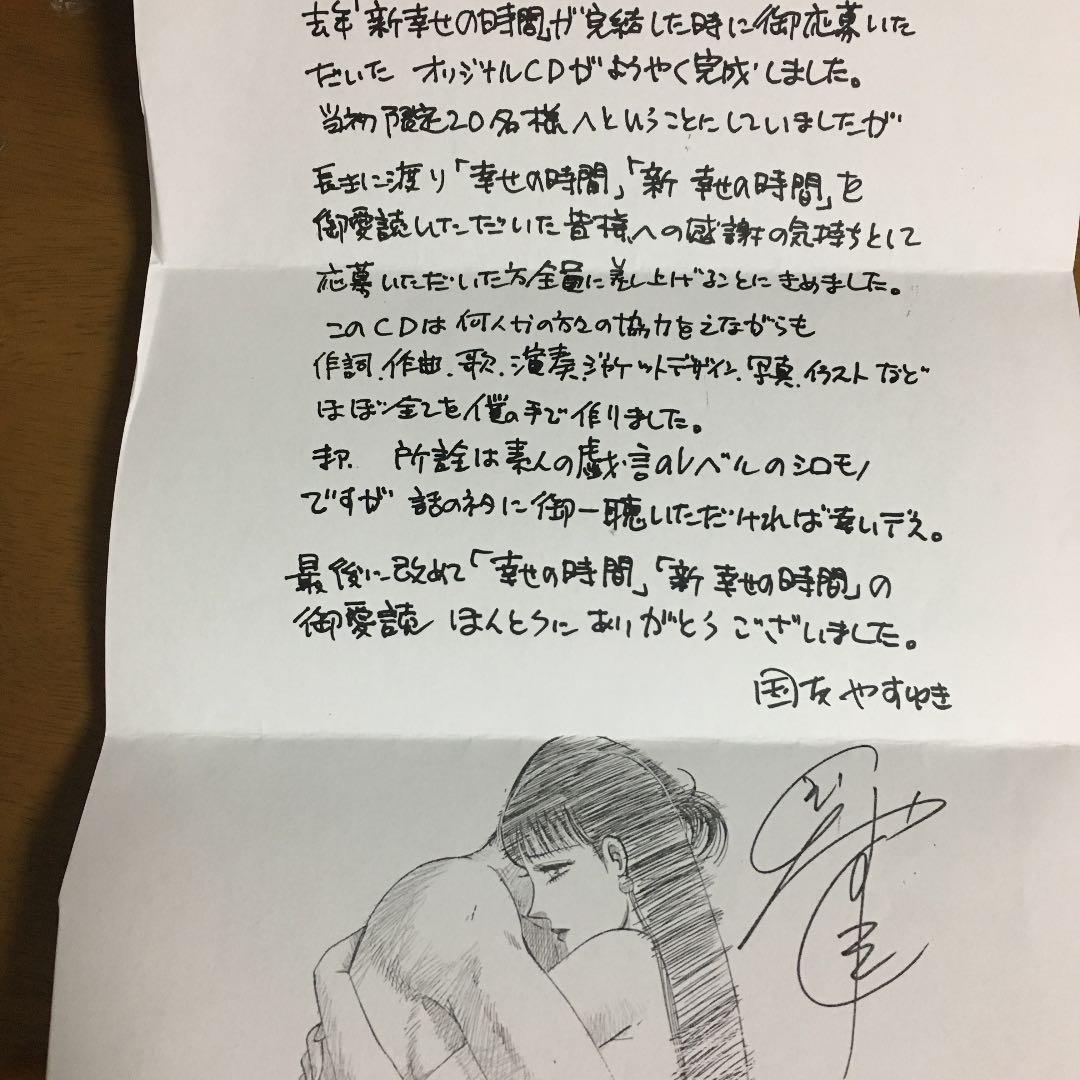 去年「新幸せの時間」が完結した時に御応募いた
だいた オリジナルCDがようやく完成しました。
当初限定20名様へということにしていましたが
長きに渡り「幸せの時間」「新 幸せの時間」を
御愛読いただいた皆様への感謝の気持ちとして
応募いただいた方全員に差し上げることにきめました。
このCDは何人かの方々の協力をえながらも
作詞.作曲.歌.演奏.ジャケットデザイン.写真.イラスト など
ほぼ全てを僕の手で作りました。
まァ 所詮は素人の戯言のレベルのシロモノ
ですが 話のネタに御一聴いただければ幸いデス。
最後に改めて「幸せの時間」「新 幸せの時間」の
御愛読 ほんとうにありがとうございました。
国友やすゆき